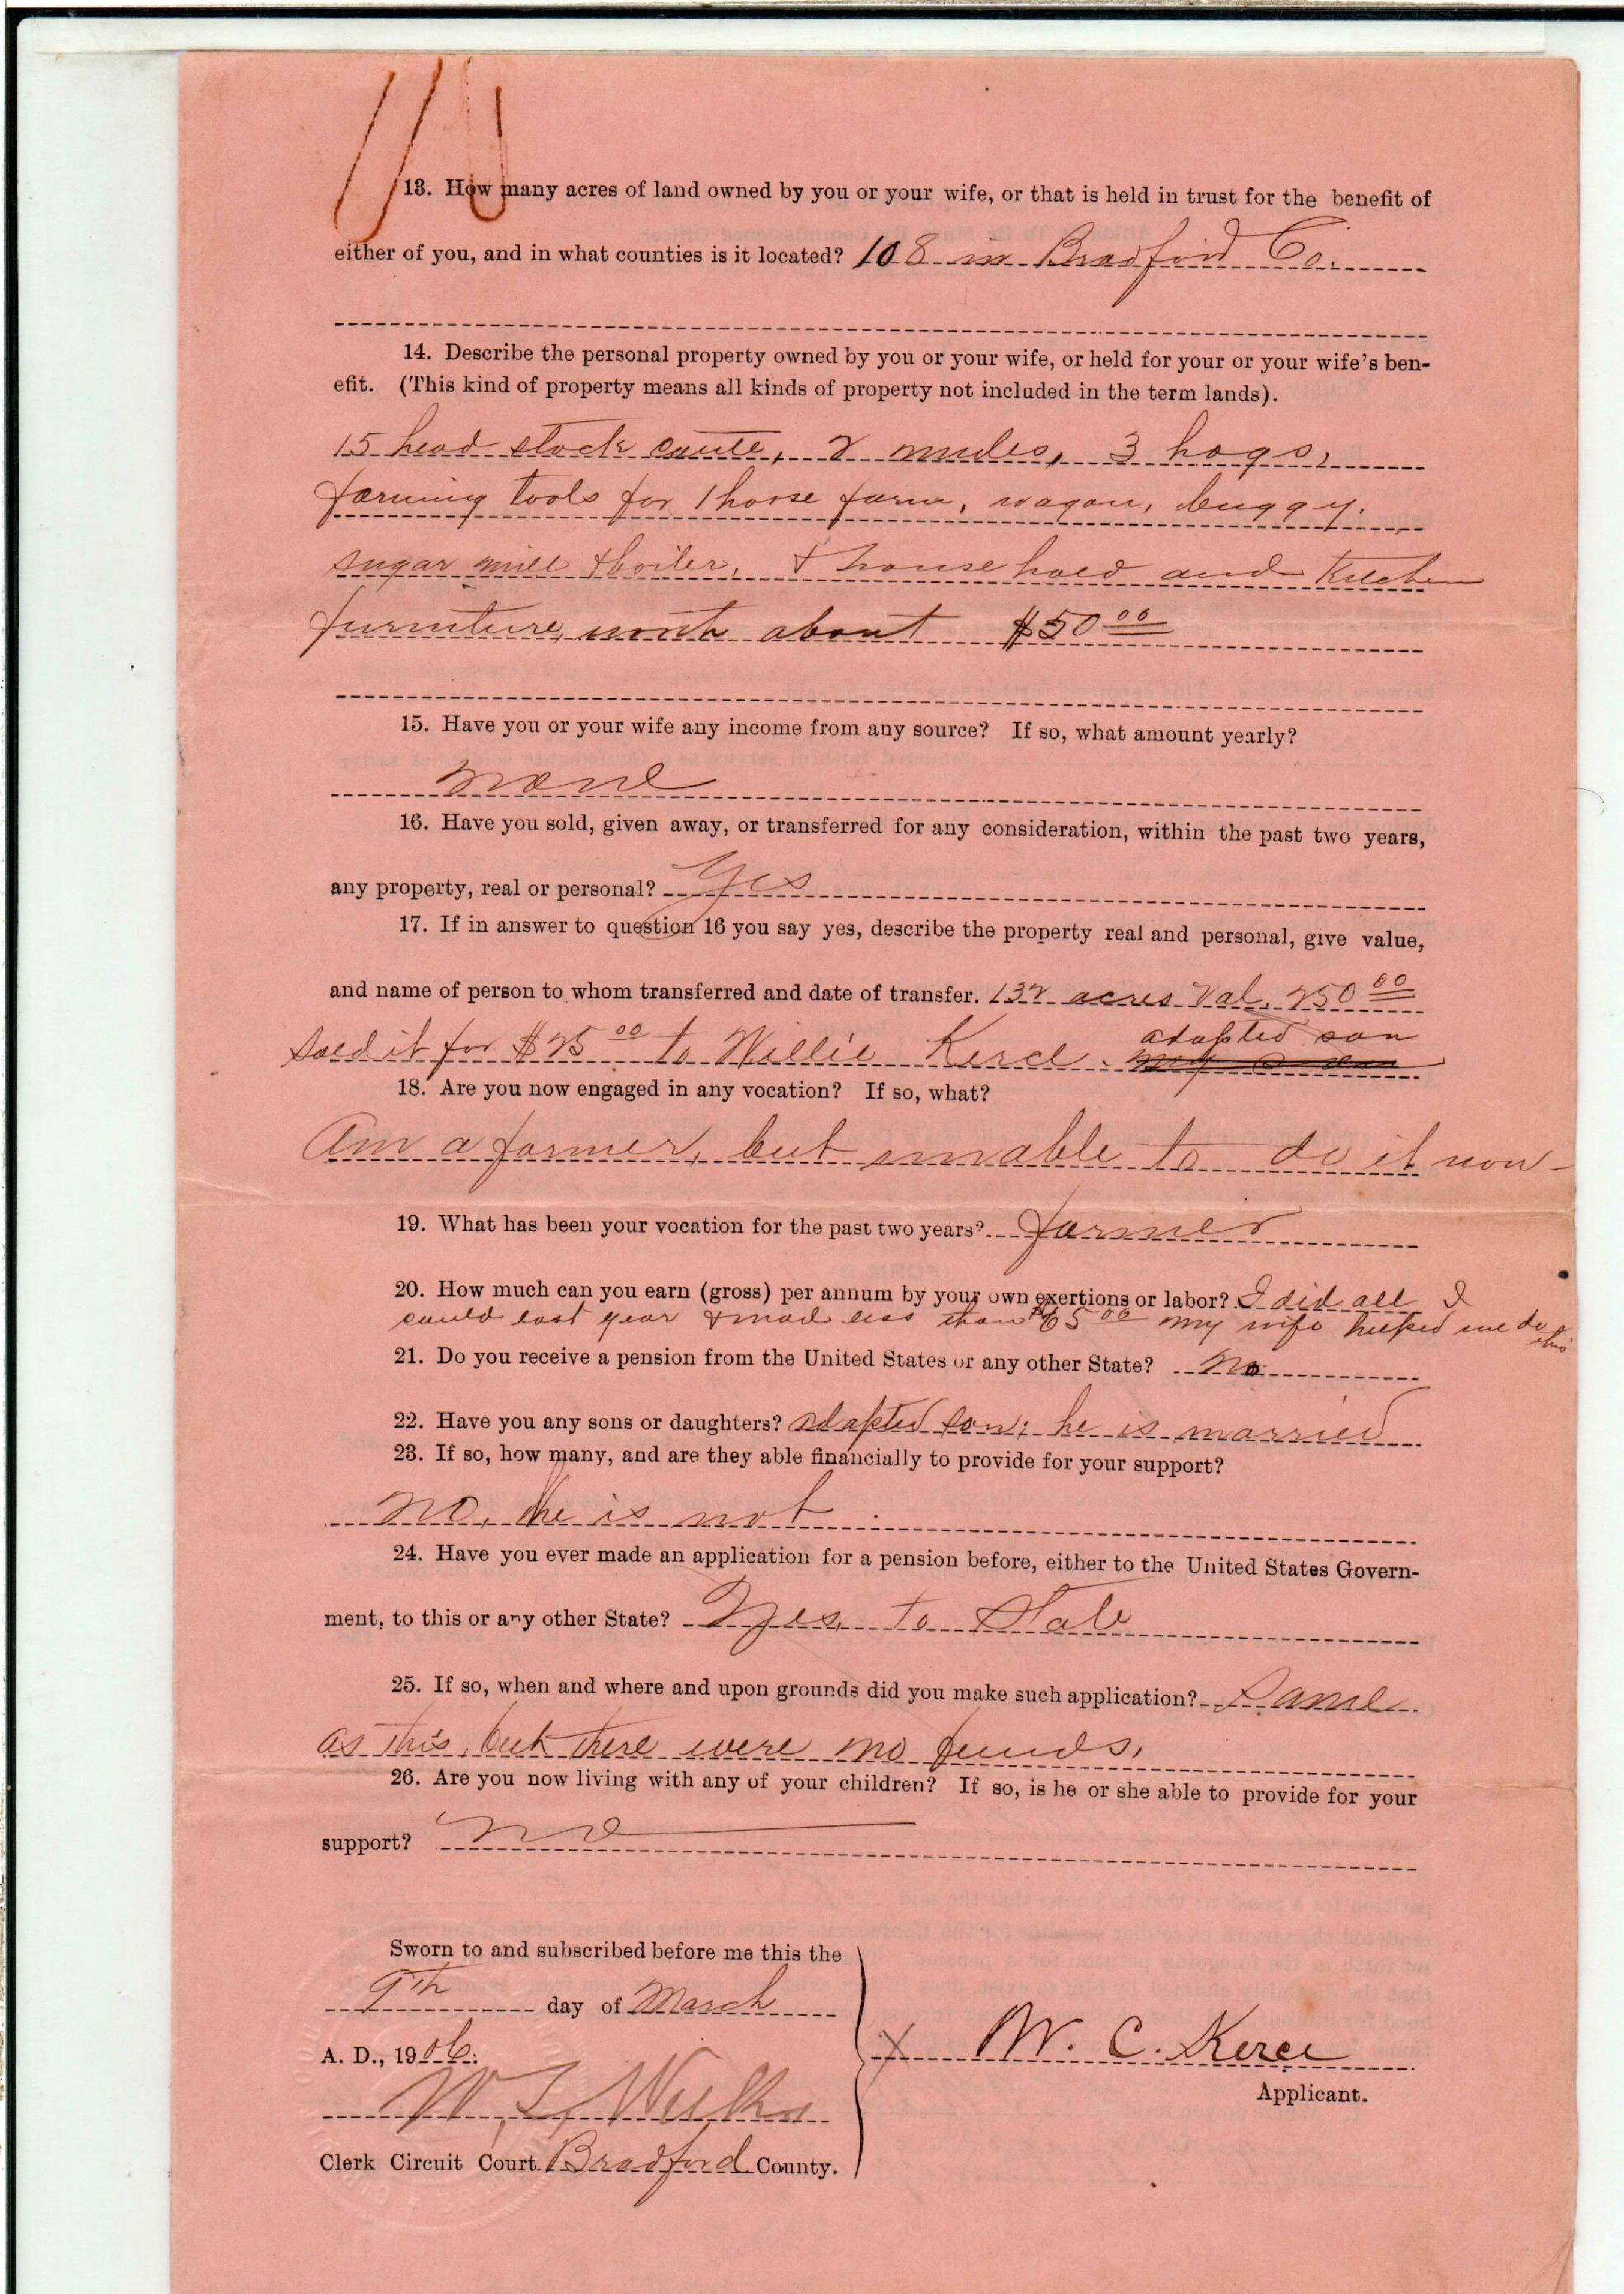 13. How many acres of land owned by you or your wife, or that is held in trust for the benefit of
either of you, and in what counties is it located? 108 in Bradford Co.
14. Describe the personal property owned by you or your wife, or held for your or your wife's ben-
efit. (This kind of property means all kinds of property not included in the term lands).
15 head stock cattle, 2 mules, 3 hogs,
farming tools for 1 horse farm, wagon, buggy.
sugar mill & boiler, & house hold and Kitchen
furniture, worth about $50 00
15. Have you or your wife any income from any source? If so, what amount yearly?
None
16. Have you sold, given away, or transferred for any consideration, within the past two years,
any property, real or personal? Yes
17. If in answer to question 16 you say yes, describe the property real and personal, give value,
and name of person to whom transferred and date of transfer. 132 acres Val. 250 00
adopted son
Sold it for $25 00 to Willie Kerce. my son
18. Are you now engaged in any vocation? If so, what?
Am a farmer, but unable to do it now-
19. What has been your vocation for the past two years? farmer
20. How much can you earn (gross) per annum by your own exertions or labor? I did all I
could last year & mad less than $65 00 my wife helped me do this
21. Do you receive a pension from the United States or any other State? No
22. Have you any sons or daughters? adopted son; he is married
23. If so, how many, and are they able financially to provide for your support?
No, he is not
24. Have you ever made an application for a pension before, either to the United States Govern-
ment, to this or any other State? Yes, to State
25. If so, when and where and upon grounds did you make such application? Same
as this, but there were no funds,
26. Are you now living with any of your children? If so, is he or she able to provide for your
support? no
Sworn to and subscribed before me this the
9th day of March
A. D., 1906:
W. C. Kerce
Applicant.
Clerk Circuit Court Bradford County.